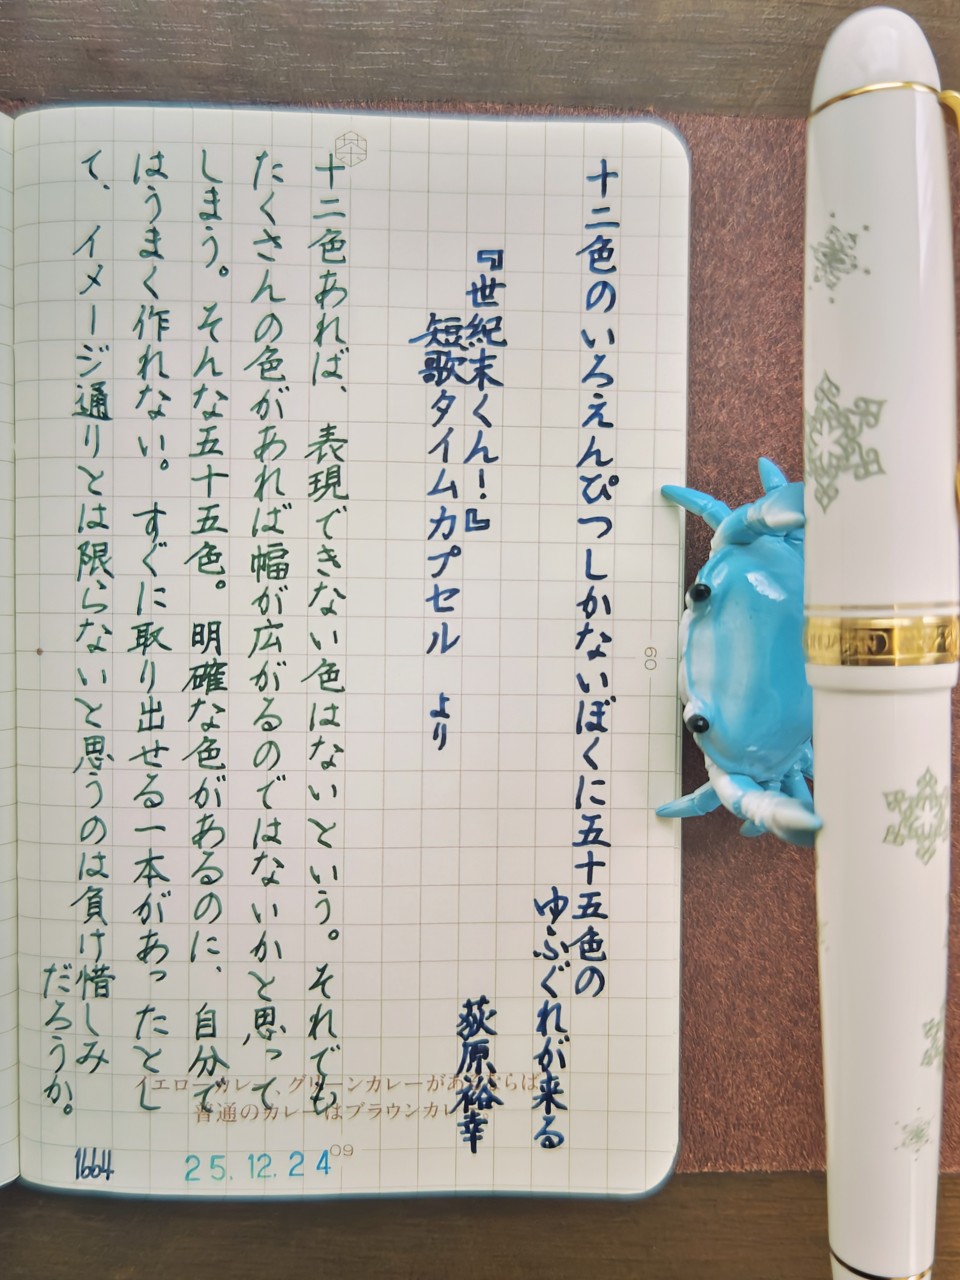 十二色のいろえんぴつしかないぼくに五十五色の
ゆふぐれが来る
『世紀末くん!』
短歌タイムカプセル より
荻原裕幸
十二色あれば、表現できない色はないという。それでも
たくさんの色があれば幅が広がるのではないかと思って
しまう。そんな五十五色。明確な色があるのに、自分で
はうまく作れない。すぐに取り出せる一本があったとし
て、イメージ通りとは限らないと思うのは負け惜しみ
だろうか。
イエローカレー、グリーンカレーが
普通のカレーはブラウンカレ
1664
25.12.24
09
60